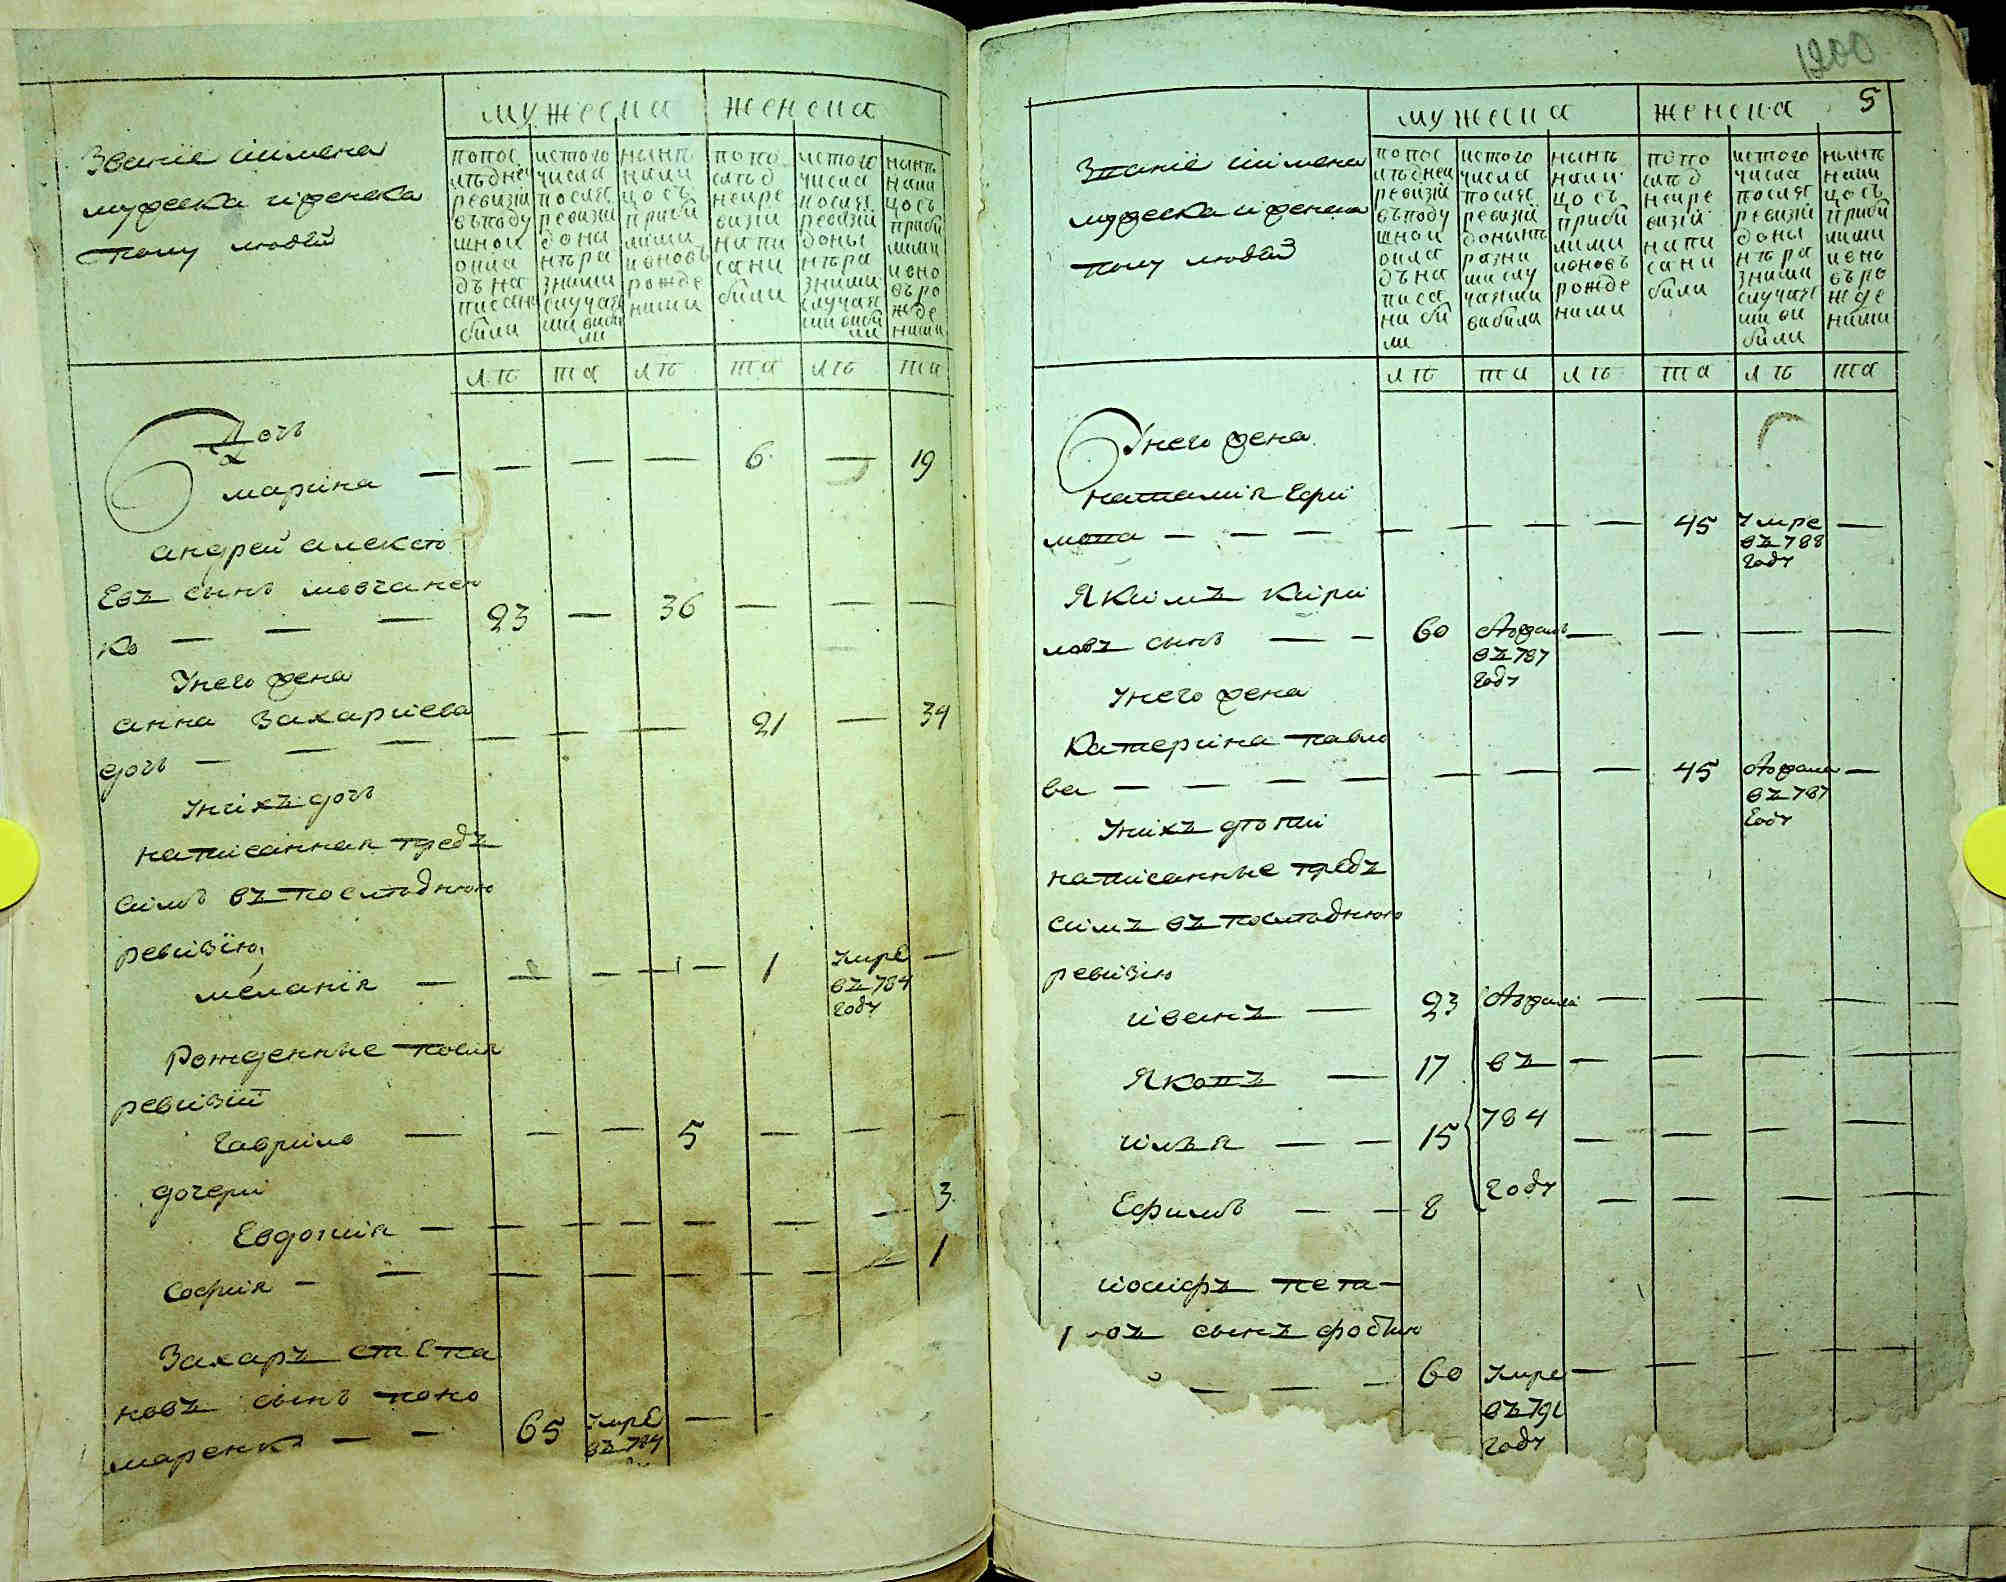 мужеска женска
Званіе иимена
мужеска иженска
полу людей
попос
лѣдней
ревизіи
въподу
шной
окла
дъна
писани
били
истого
числа
послѣ
ревизіи
дони
нѣра
зними
случая
ми виби
ли
нынѣ
нали
цосъ
приби
лими
иновъ
рожде
ними
попо
слѣд
нейре
визіи
напи
сани
били
истого
числа
послѣ
ревизіи
доны
нѣра
зними
случая
ми виби
ли
нынѣ
нали
цосъ
приби
лими
ино
въро
жде
ними
лѣ та лѣ та лѣ та
Дочь
марина — — — — 6 — 19
андрей алексѣ
евъ сынъ мовчанен
ко — — — 23 — 36 — — —
Унего жена
анна Захаріева
дочь — — — — — — 21 — 34
Унихъ дочь
написанная предъ
симъ въ последнюю
ревизію
меланія — — — — 1 Умре —
въ 784
году
Рожденные после
ревизіи
Гаврило — — — 5 — — —
дочери
Евдокия — — — — — — — 3
София — — — — — — — — 1
Захаръ степа
новъ сынъ поно
маренко — — 65 Умре — -
въ 784
1200
5
мужеска женска
Званіе иимена
мужеска иженска
полу людей
попос
лѣдней
ревизіи
въподу
шной
окла
дъна
писа
ни би
ли
истого
числа
послѣ
ревизіи
донынѣ
разни
ми слу
чаями
вибили
нынѣ
нали
цосъ
приби
лими
иновъ
рожде
ними
попо
слѣд
нейре
визіи
напи
сани
били
истого
числа
послѣ
ревизіи
доны
нѣра
зними
случая
ми ви
били
нынѣ
нали
цосъ
приби
лими
ино
въро
жде
ними
лѣ та лѣ та лѣ та
Унего жена
наталия Ефи
мова — — — — — — — 45 Умре —
въ 788
году
Якимъ Кири
ловъ сынъ — — 60 — — — —
въ 787
году
Унего жена
Катерина павло
ва — — — — — — — 45 —
въ 787
году
Унихъ дѣти
написанные предъ
симъ въ последнюю
ревизію
иванъ — 23 — — — —
Яковъ — 17 въ — — — —
илья — — 15 784 — — — —
Ефимъ — — 8 году — — — —
иосифъ
сынъ
— — — 60 Умре — — — —
году